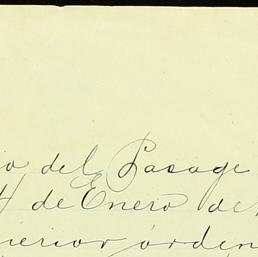 io del Pasage
4 de Enero de
perior órden